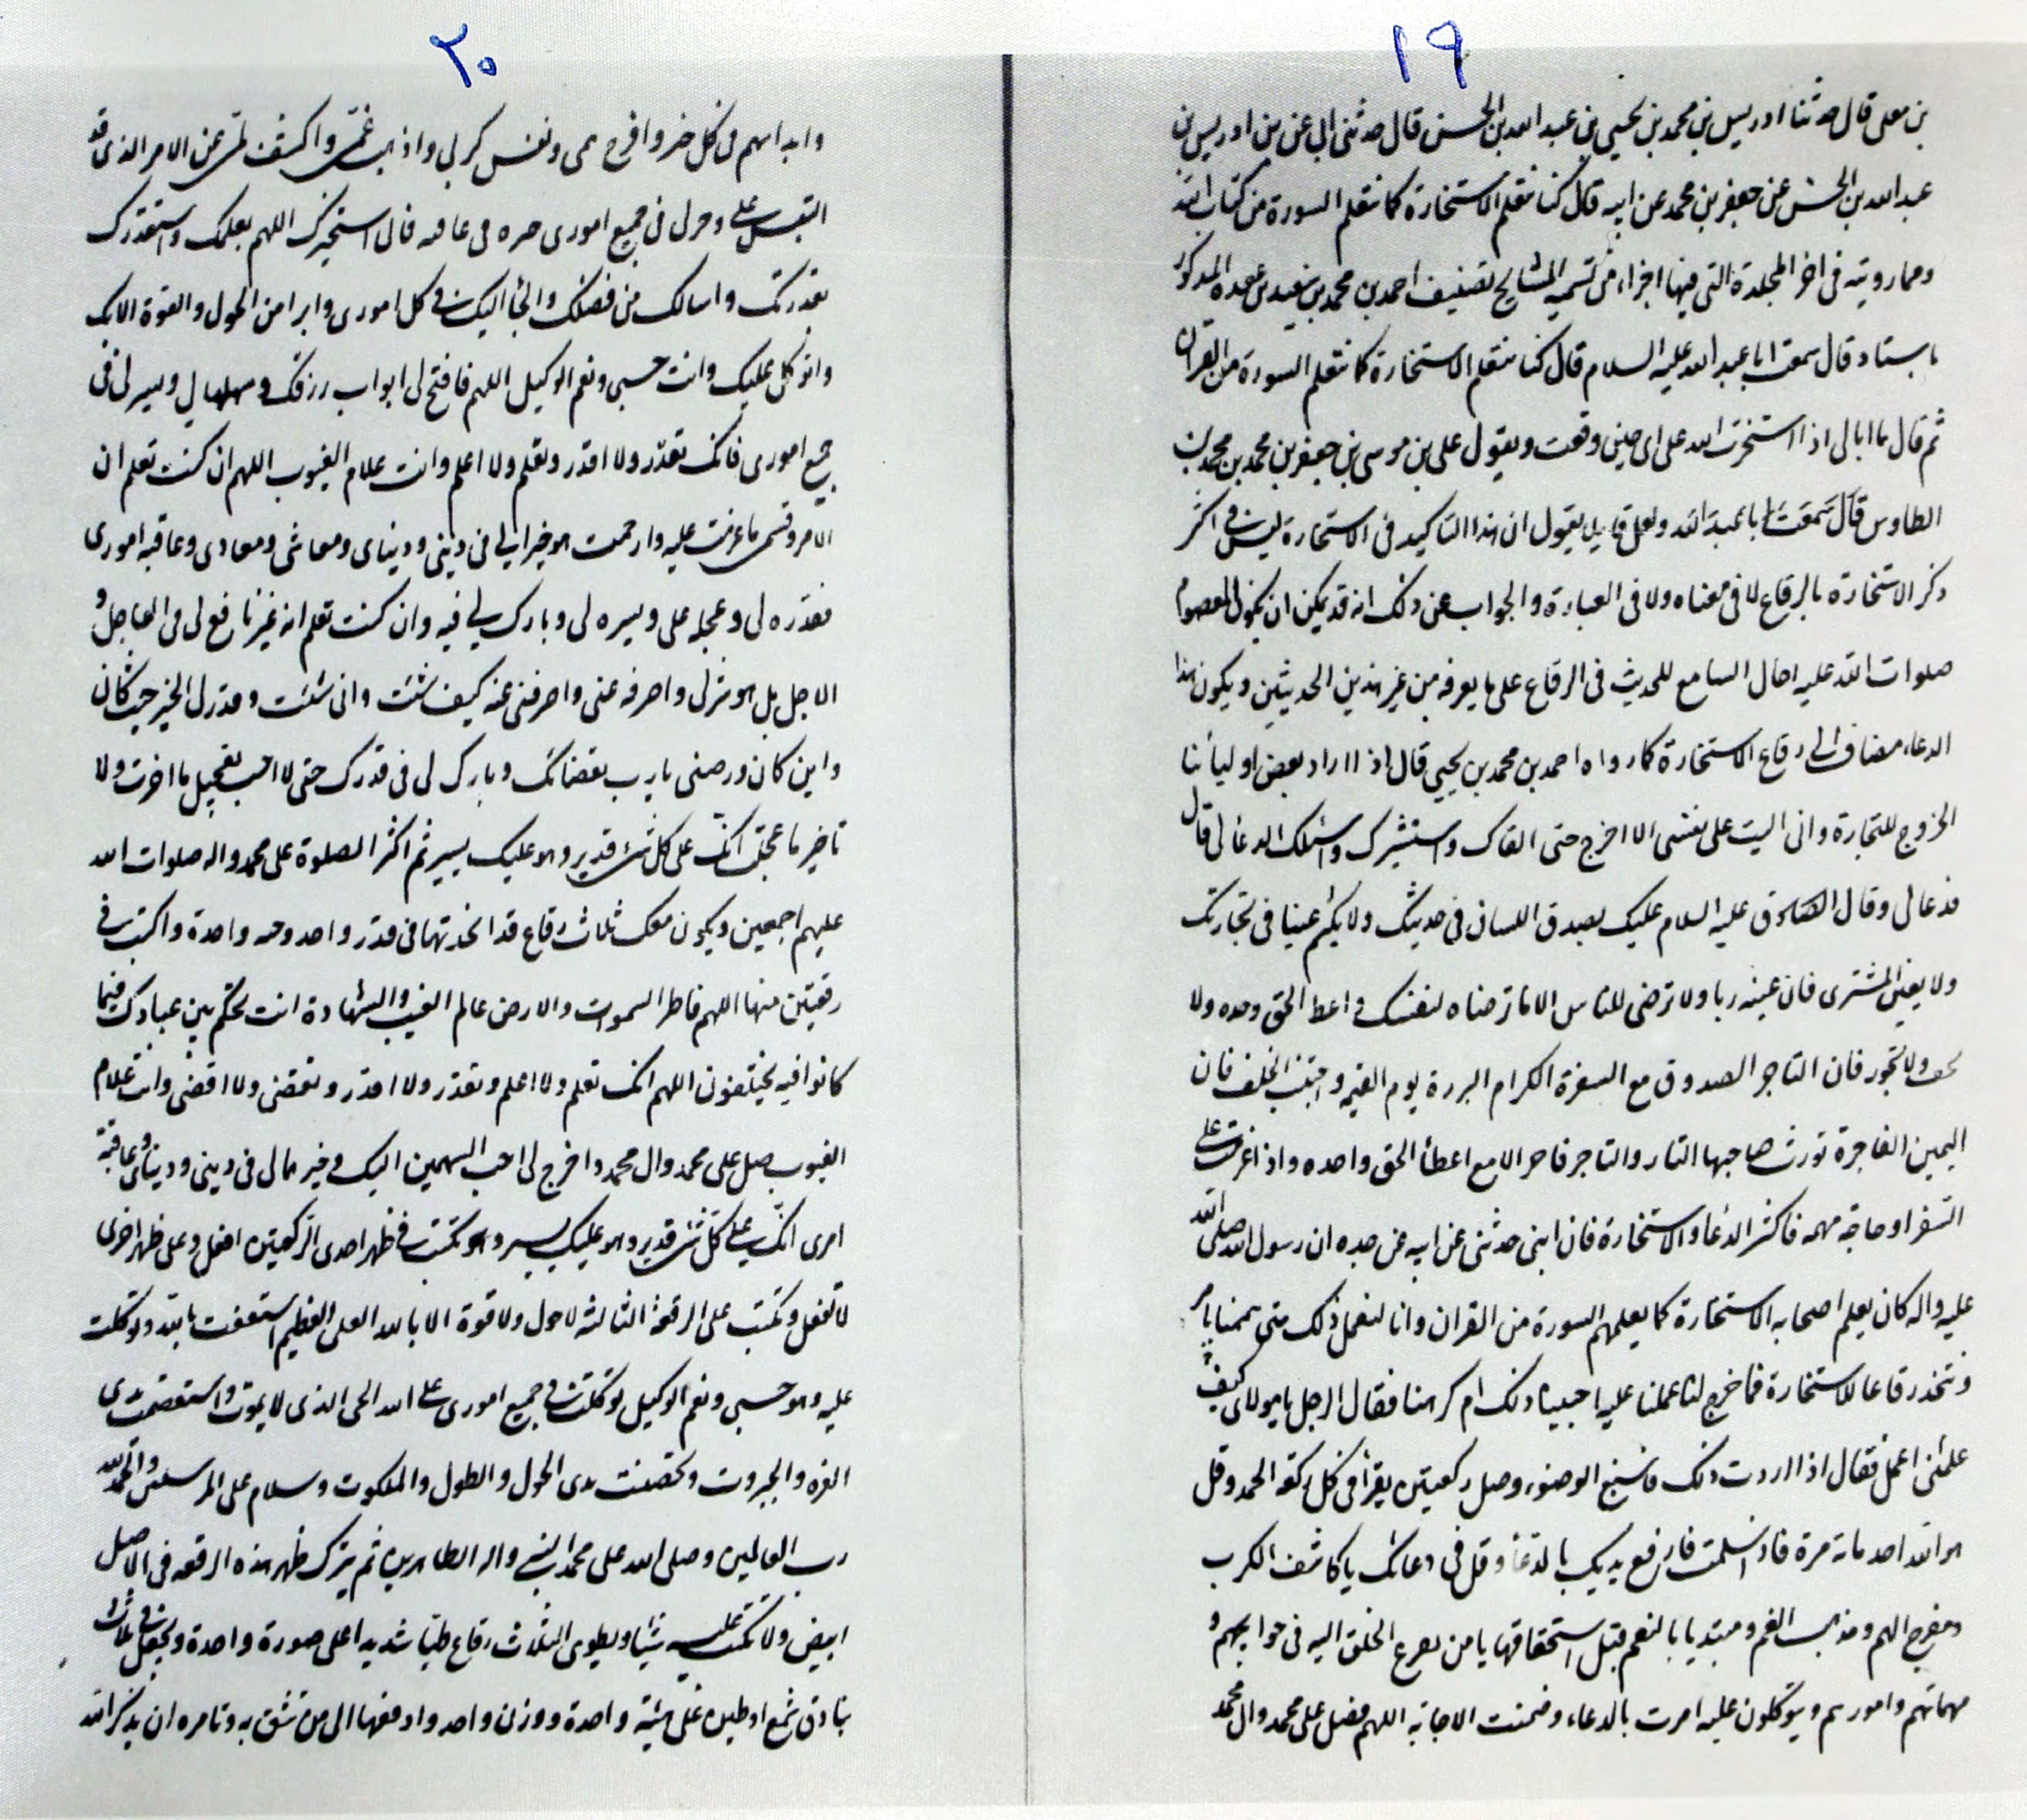 ١٩
بن معلى قال حدثنا ادريس بن محمد بن يحيى بن عبد الله بن الحسن قال حدثنى ابى عن ادريس بن
عبد الله بن الحسن عن جعفر بن محمد عن ابيه قال كنا نتعلم الاستخارة كما نتعلم السورة من كتاب الله
ومما رويته فى اخر المجلدة التى فيها اجزاء من تسمية المشايخ تصنيف احمد بن محمد بن سعيد بن عقده المذكور
باسناد قال سمعت ابا عبد الله عليه السلام قال كنا نتعلم الاستخارة كما نتعلم السورة من القران
ثم قال ما ابالى اذا استخرت الله على اى جنبى وقعت ويقول على بن موسى بن جعفر بن محمد بن محمد بن
الطاوس قال سمعت ابا عبد الله ولعل قايل يقول ان هذا التاكيد فى الاستخارة ليس فى اكثر
ذكر الاستخارة بالرقاع لا فى معناه ولا فى العبارة والجواب عن ذلك انه قد يمكن ان يكون المعصوم
صلوات الله عليه احال السامع للحديث فى الرقاع على ما يعرفه من غير هذين الحديثين ويكون هذا
الدعاء مضاف الى رقاع الاستخارة كما رواه احمد بن محمد بن يحيى قال اذا اراد بعض اوليائنا
الخروج للتجارة وانى اليت على نفسى الا اخرج حتى القاك واستشيرك واسئلك الدعا لى قال
فدعا لى وقال الصادق عليه السلام عليك بصدق اللسان فى حديثك ولا يكتم عيبا فى تجارتك
ولا يغبن المشترى فان غبنه ربا ولا ترضى للناس الا ما ترضاه لنفسك واعط الحق وحده ولا
تخف ولا تجور فان التاجر الصدوق مع السفرة الكرام البررة يوم القيمه واجتنب الحلف فان
اليمين الفاجرة تورث صاحبها النار والتاجر فاجر الا مع اعطا الحق واحده واذا عزمت على
السفر او حاجة مهمه فاكثر الدعا والاستخارة فان ابنى حدثنى عن ابيه عن جده ان رسول الله صلى الله
عليه واله كان يعلم اصحابه الاستخارة كما يعلمهم السورة من القران وانا لنعمل ذلك متى هممنا بامر
ونتخذ رقاعا للاستخارة فما خرج لنا عملنا عليه احببنا ذلك ام كرهنا فقال الرجل يا مولاى كيف
علمنى اعمل فقال اذا اردت ذلك فاسبغ الوضوء وصل ركعتين يقرأ فى كل ركعة الحمد وقل
هو الله احد مائة مرة فاذا سلمت فارفع يديك بالدعا وقل فى دعائك يا كاشف الكرب
ومفرج الهم ومذهب الغم ومبتديا بالنعم قبل استحقاقها يا من يفزع الخلق اليه فى حوايجهم و
مهماتهم وامورهم ويتوكلون عليه امرت بالدعاء وضمنت الاجابة اللهم فصل على محمد وال محمد
٢٠
وابدا بهم فى كل خير وافرج همى ونفس كربى واذهب غمى واكشف لى عن الامر الذى قد
التبس على وخر لى فى جميع امورى خيره فى عافيه فانى استخيرك اللهم بعلمك واستقدرك
بقدرتك واسالك من فضلك والجا اليك فى كل امورى وابرا من الحول والقوة الا بك
واتوكل عليك وانت حسبى ونعم الوكيل اللهم فافتح لى ابواب رزقك وسهلها لى ويسر لى فى
جميع امورى فانك تقدر ولا اقدر وتعلم ولا اعلم وانت علام الغيوب اللهم ان كنت تعلم ان
الامر وتسمى ما عزمت عليه وارجعت هو خيرا لى فى دينى ودنياى ومعاشى ومعادى وعاقبة امورى
فقدره لى وعجله على ويسره لى وبارك لى فيه وان كنت تعلم انه غير نافع لى فى العاجل و
الاجل بل هو شر لى واصرفه عنى واصرفنى عنه كيف شئت وانى شئت وقدر لى الخير حيث كان
واين كان ورضنى يا رب بقضائك وبارك لى فى قدرك حتى لا احب تعجيل ما اخرت ولا
تاخير ما عجلت انك على كل شى قدير وهو عليك يسير ثم اكثر الصلوة على محمد واله صلوات الله
عليهم اجمعين ويكون معك ثلاث رقاع قد اتخذتها فى قدر واحد وهيئه واحدة واكتب فى
رقعتين منها اللهم فاطر السموات والارض عالم الغيب والشهادة انت تحكم بين عبادك فيما
كانوا فيه يختلفون اللهم انك تعلم ولا اعلم وتقدر ولا اقدر وتقضى ولا اقضى وانت علام
الغيوب صل على محمد وال محمد واخرج لى احب السهمين اليك وخيرهما لى فى دينى ودنياى وعاقبة
امرى انك على كل شى قدير وهو عليك يسير وتكتب فى ظهر احدى الركعتين افعل وعلى ظهر اخرى
لا تفعل وتكتب على الرقعة الثالثه لا حول ولا قوة الا بالله العلى العظيم استعنت بالله وتوكلت
عليه وهو حسبى ونعم الوكيل توكلت فى جميع امورى على الله الحى الذى لا يموت واستعصمت بذى
العزه والجبروت وتحصنت بذى الحول والطول والملكوت وسلام على المرسلين والحمد لله
رب العالمين وصلى الله على محمد النبى واله الطاهرين ثم يترك ظهر هذه الرقعه فى الاصل
ابيض ولا تكتب عليه شيئا ويطوى الثلاث رقاع طيا شديدا على صورة واحدة ويجعل فى ثلاث
بنادق شمع او طين على هيئة واحدة ووزن واحد وادفعها الى من تثق به وتامره ان يذكر الله